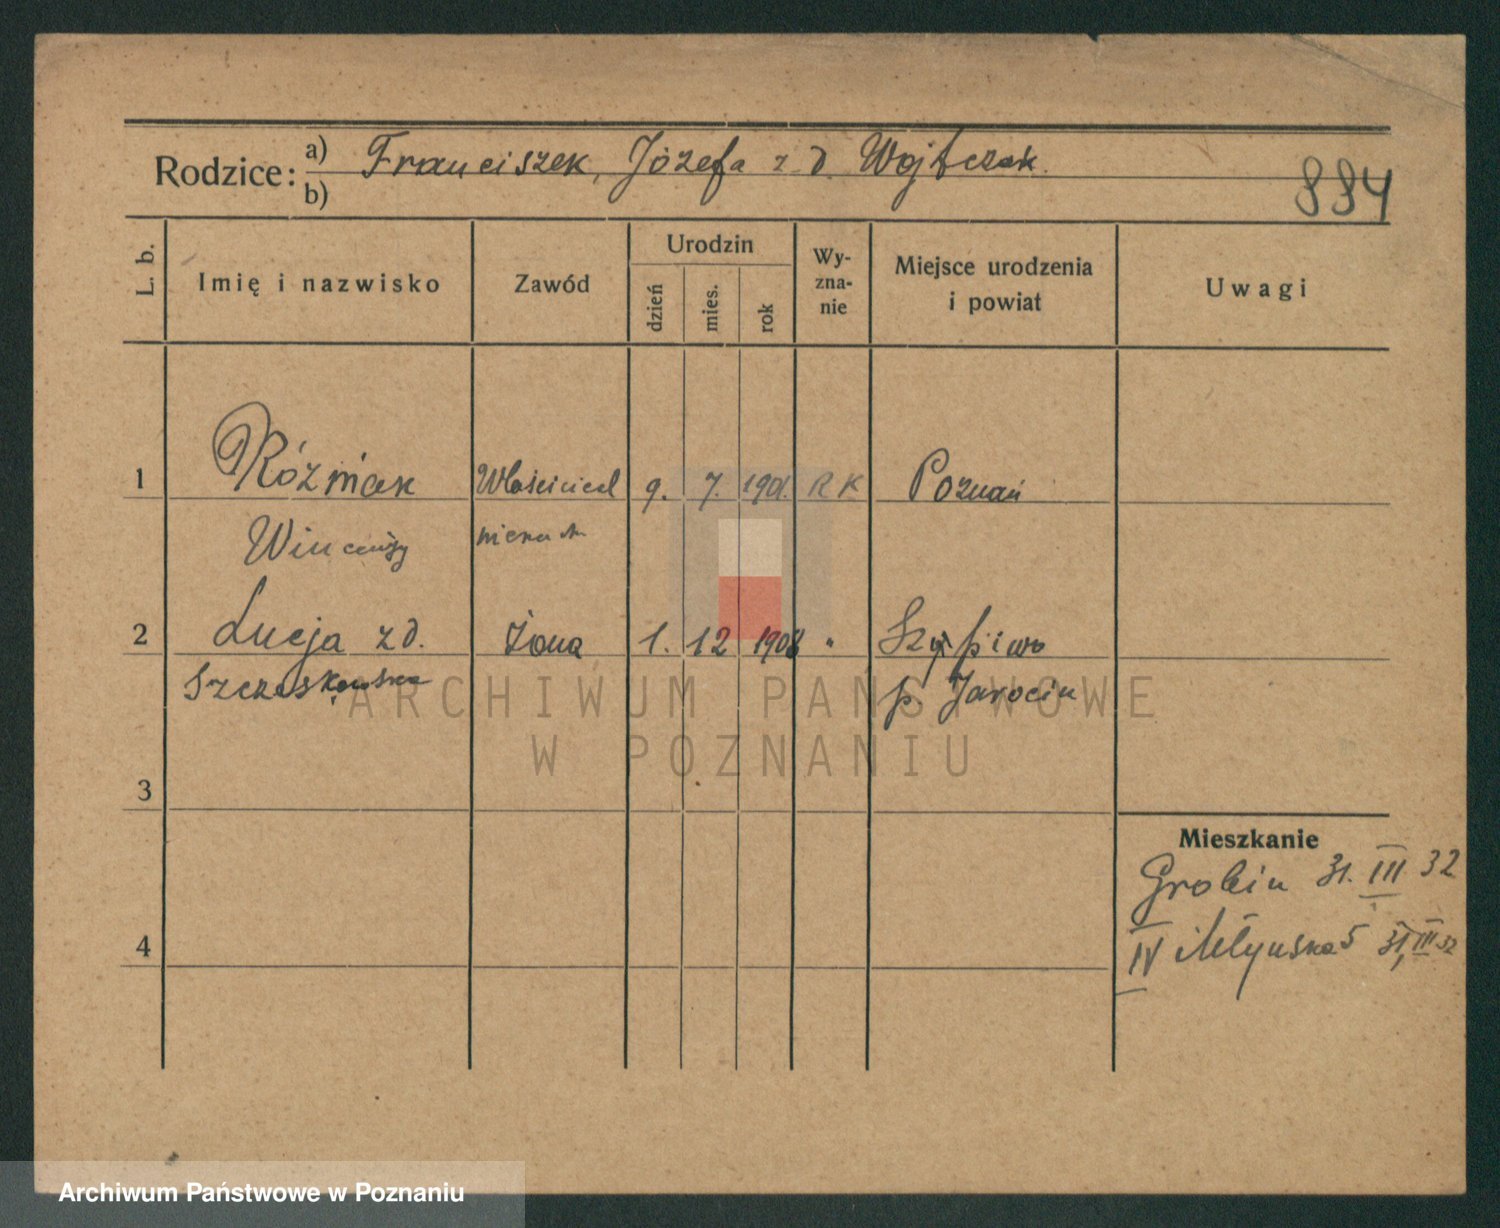 Rodzice: a) Franciszek, Józefa z d. Wojtczak
b)
884
L. b.
Imię i nazwisko
Zawód
Urodzin
dzień
mies.
rok
Wy-
zna-
nie
Miejsce urodzenia
i powiat
Uwagi
1 Różniak Właściciel 9. 7. 1901. RK Poznań
Wincenty
2 Łucja z d. Żona 1. 12 1908 "
p. Jarocin
ARCHIWUM PAŃSTWOWE
W POZNANIU
3
Mieszkanie
Grobin 31. III 32
4
IV Młyńska 5 31, III 32
Archiwum Państwowe w Poznaniu